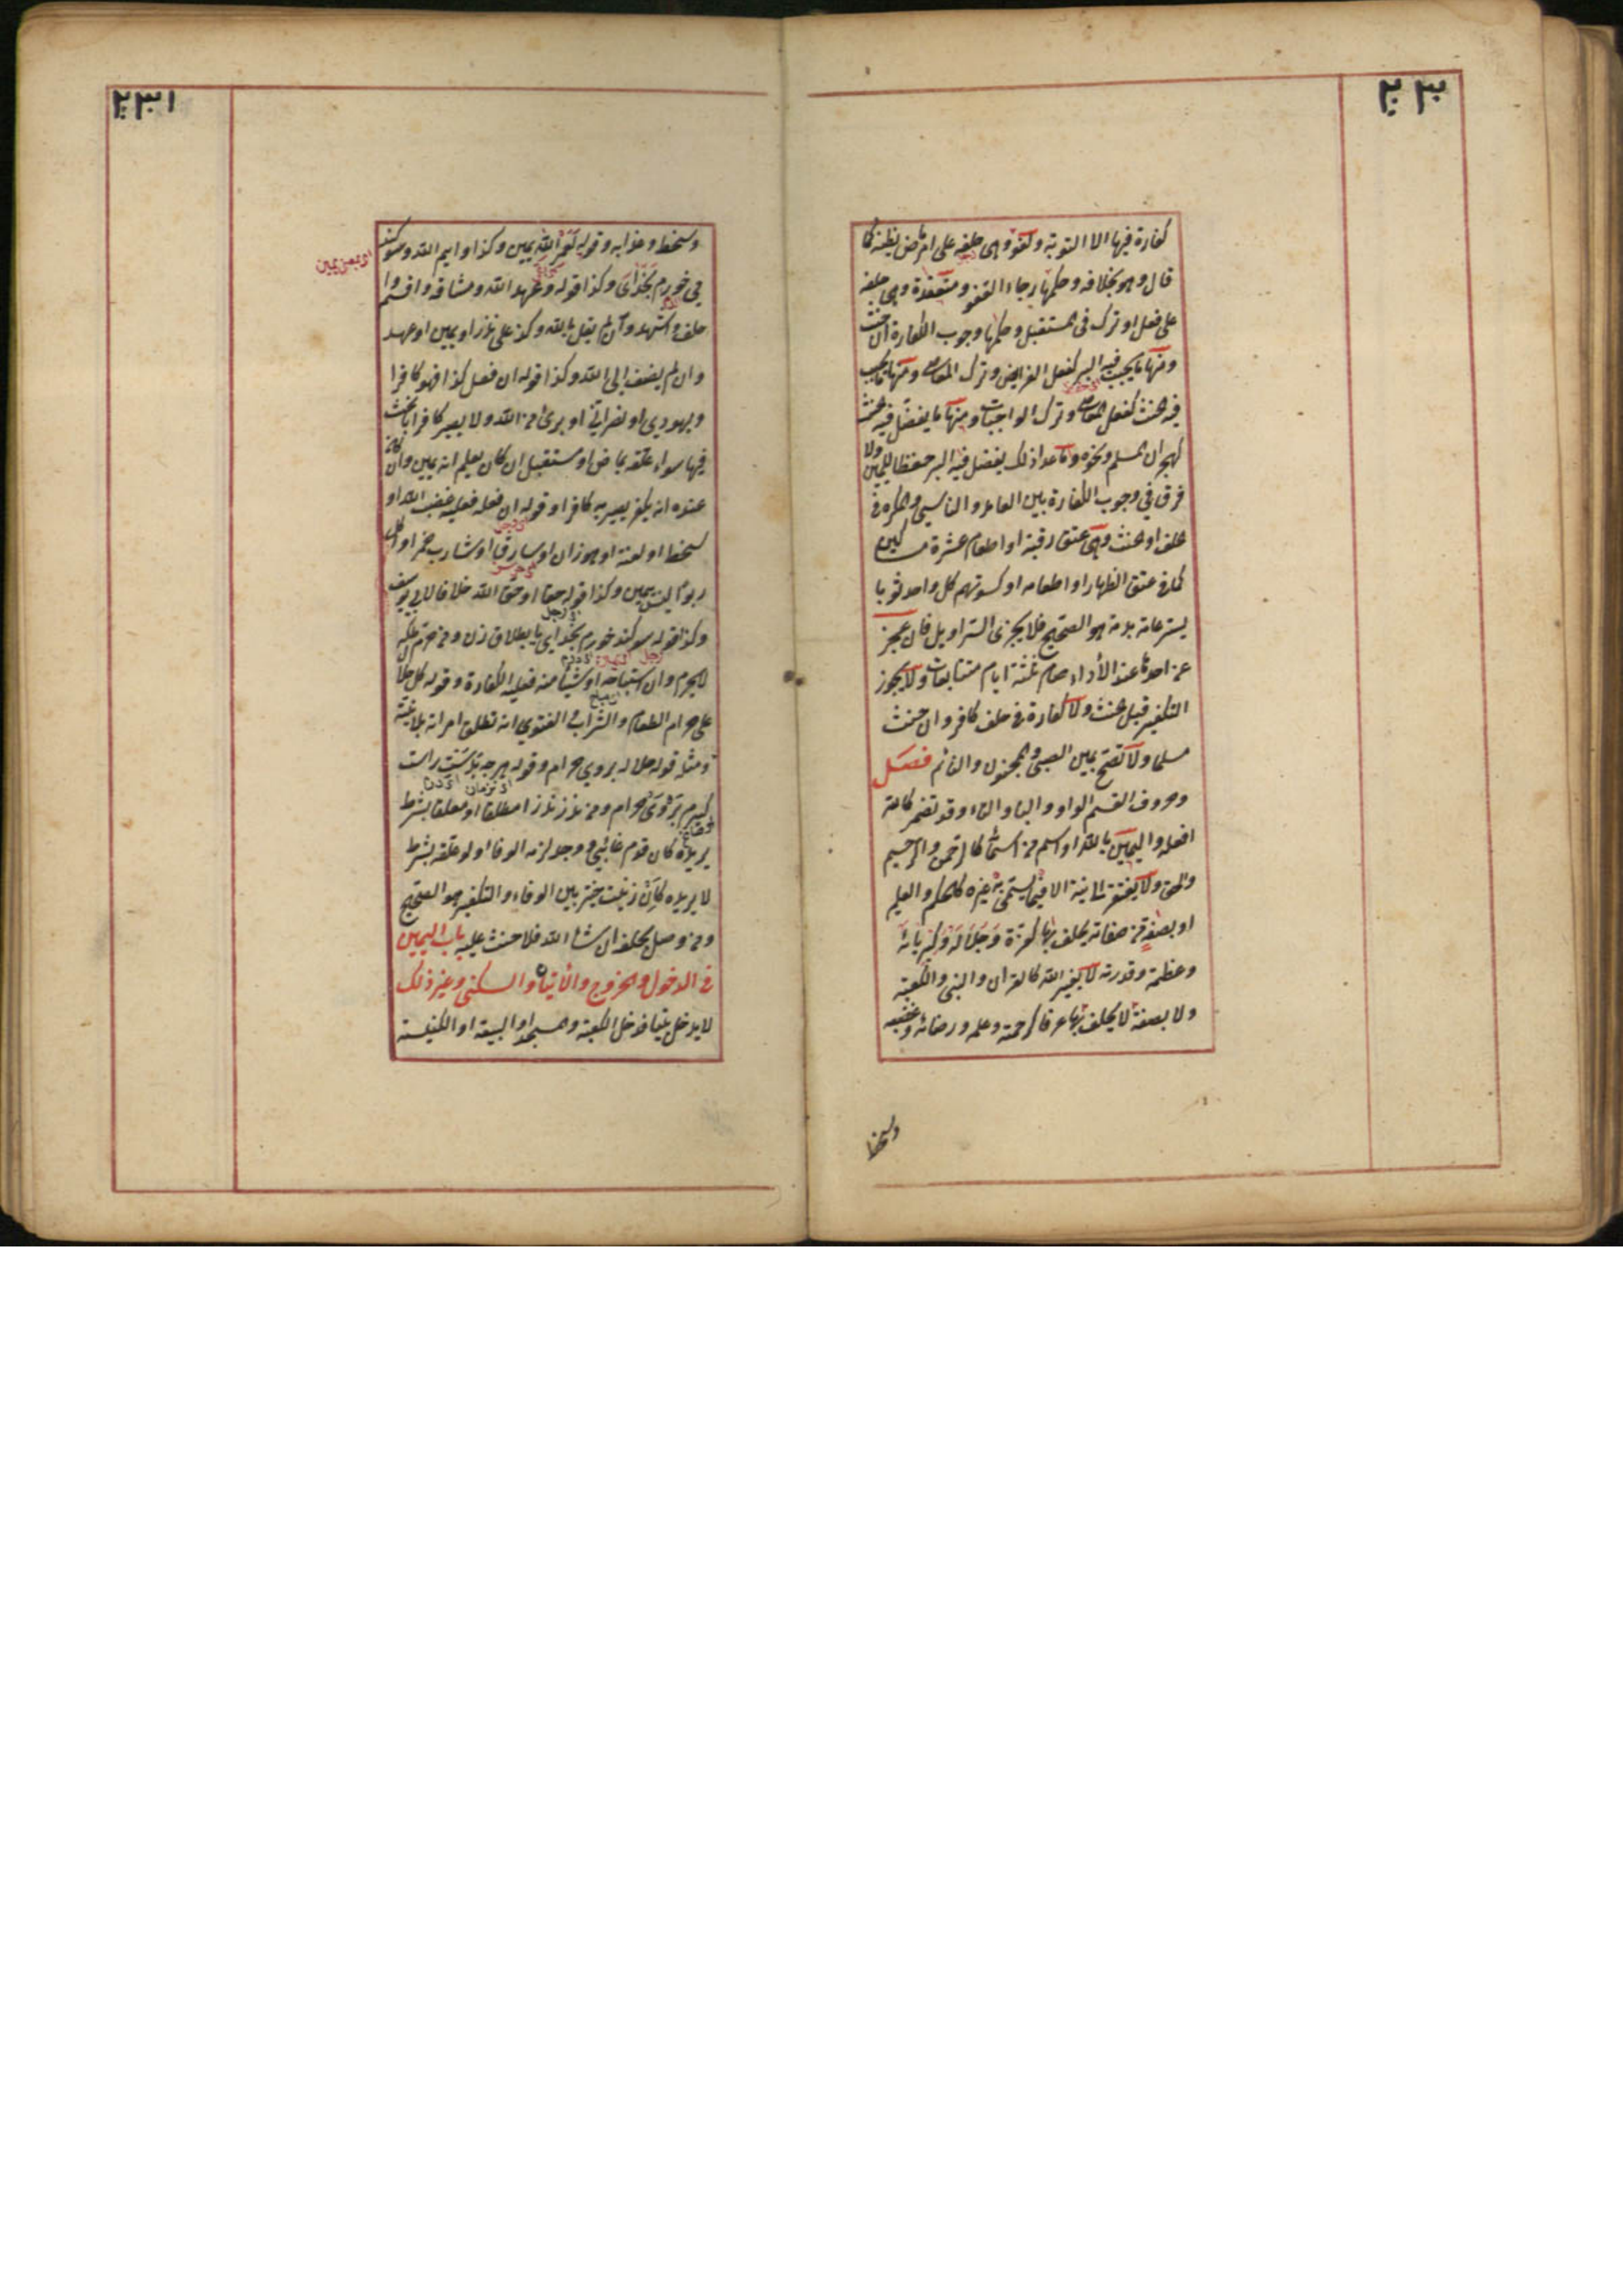 ٢٣٠
كفارة فيها الا التوبة ولغو وهى حلفه على امر ماض يظنه كما
قال وهو بخلافه وحكمها رجاء العفو ومنعقدة وهى حلفه
على فعل او ترك فى المستقبل وحكمها وجوب الكفارة ان حنث
ومنها ما يجب فيه البر كفعل الفرايض وترك المعاصى ومنها ما يجب
فيه الحنث كفعل المعاصى وترك الواجبات ومنها ما يفضل فيه الحنث
كهجران المسلم ونحوه وما عدا ذلك يفضل فيه البر حفظا لليمين ولا
فرق فى وجوب الكفارة بين العامد والناسى والمكره فى
الحلف او الحنث وهى عتق رقبة او اطعام عشرة مساكين
كما فى عتق الظهار او اطعامه او كسوتهم كل واحد ثوبا
يستر عامة بدنه هو الصحيح فلا يجزئ السراويل فان عجز
عن احدها عند الأداء صام ثلثة ايام متتابعات ولا يجوز
التكفير قبل الحنث ولا كفارة فى حلف كافر وان حنث
مسلما ولا تصح يمين الصبى والمجنون والنائم فصل
وحروف القسم الواو والباء والتاء وقد تضمر كالله
افعله واليمين بالله او اسم من اسمائه كالرحمن والرحيم
والحق ولا يفتقر الى نية الا فيما يسمى به غيره كالحكيم والعليم
او بصفة من صفاته يحلف بها كعزة وجلاله وكبريائه
وعظمته وقدرته لا بغير الله كالقران والنبى والكعبة
ولا بصفة لا يحلف بها عرفا كرحمته وعلمه ورضائه وغضبه
وسخط
٢٣١
وسخطه وعذابه وقوله لعمر الله يمين وكذا وايم الله وسوكند
مى خورم بخداى وكذا قوله وعهد الله وميثاقه واقسم وا
حلف واشهد وان لم يقل بالله وكذا على نذر او يمين او عهد
وان لم يضف الى الله وكذا قوله ان فعل كذا فهو كافرا
ويهودى او نصرانى او برئ من الله ولا يصير كافرا بالحنث
فيها سواء علقه بماض او مستقبل ان كان يعلم انه يمين وان كان
عنده انه يكفر يصير به كافرا وقوله ان فعله فعليه غضب الله او
سخطه او لعنته او هو زان او سارق او شارب خمر او اكل
ربوا ليس بيمين وكذا قوله حقا او حق الله خلافا لابى يوسف
وكذا قوله سوكند خورم بخداى يا بطلاق زن ومن حرم ملكه
لا يحرم وان استباحه او شيئا منه فعليه الكفارة وقوله كل حلال
على حرام الطعام والشراب والفتوى انه تطلق امرأته بلا نية
ومثله قوله حلال بروى حرام وقوله هرچه بدست راست
گيرم بروى حرام ومن نذر نذرا مطلقا او معلقا بشرط
يريده كان قدم غائبى ووجد لزمه الوفا او لو علقه بشرط
لا يريده كان زنيت خير بين الوفاء والتكفير هو الصحيح
ومن وصل بحلفه ان شاء الله فلا حنث عليه باب اليمين
فى الدخول والخروج والاتيان والسكنى وغير ذلك
لا يدخل بيتا فدخل الكعبة والمسجد او البيعة او الكنيسة